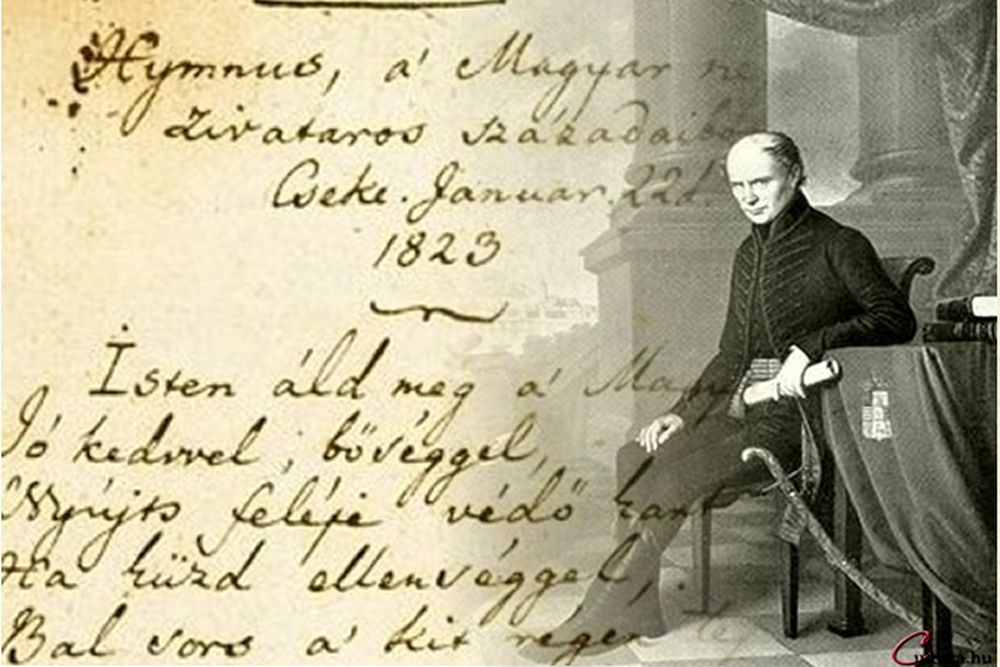 Hymnus, a' Magyar
zivataros századaiból
Cseke. Januar. 22d.
1823
Isten áld meg a' Magy
Jó kedvvel, bőséggel,
Nyújts feléje védő kart
Ha küzd ellenséggel,
Bal sors a' kit régen